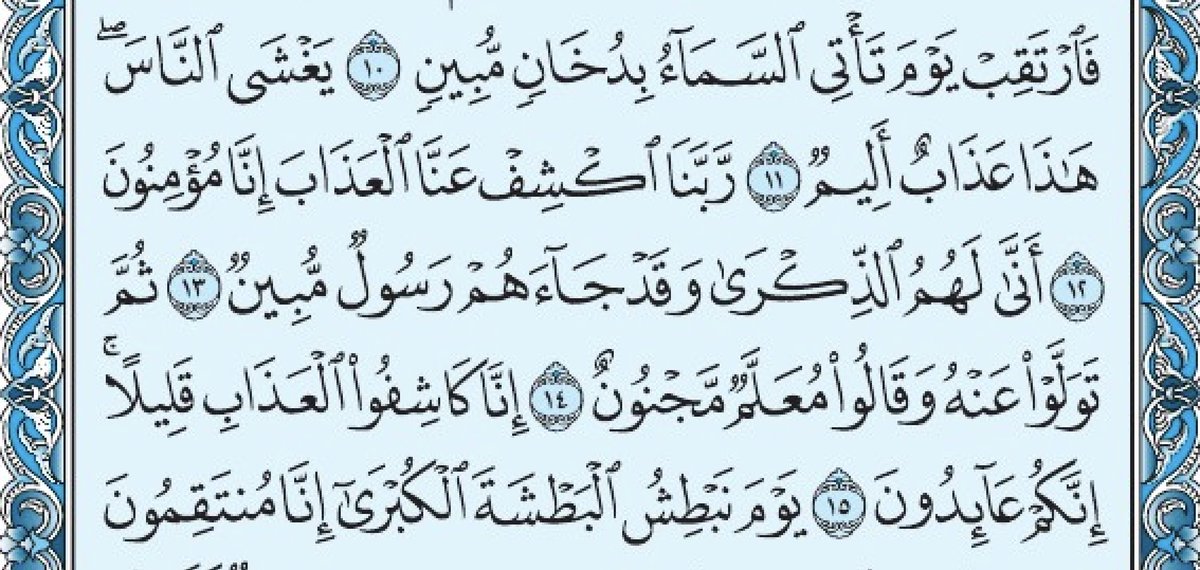 فَٱرْتَقِبْ يَوْمَ تَأْتِى ٱلسَّمَآءُ بِدُخَانٍ مُّبِينٍ ١٠ يَغْشَى ٱلنَّاسَ ۖ
هَـٰذَا عَذَابٌ أَلِيمٌ ١١ رَّبَّنَا ٱكْشِفْ عَنَّا ٱلْعَذَابَ إِنَّا مُؤْمِنُونَ
١٢ أَنَّىٰ لَهُمُ ٱلذِّكْرَىٰ وَقَدْ جَآءَهُمْ رَسُولٌ مُّبِينٌ ١٣ ثُمَّ
تَوَلَّوْا۟ عَنْهُ وَقَالُوا۟ مُعَلَّمٌ مَّجْنُونٌ ١٤ إِنَّا كَاشِفُوا۟ ٱلْعَذَابِ قَلِيلًا ۚ
إِنَّكُمْ عَآئِدُونَ ١٥ يَوْمَ نَبْطِشُ ٱلْبَطْشَةَ ٱلْكُبْرَىٰٓ إِنَّا مُنتَقِمُونَ